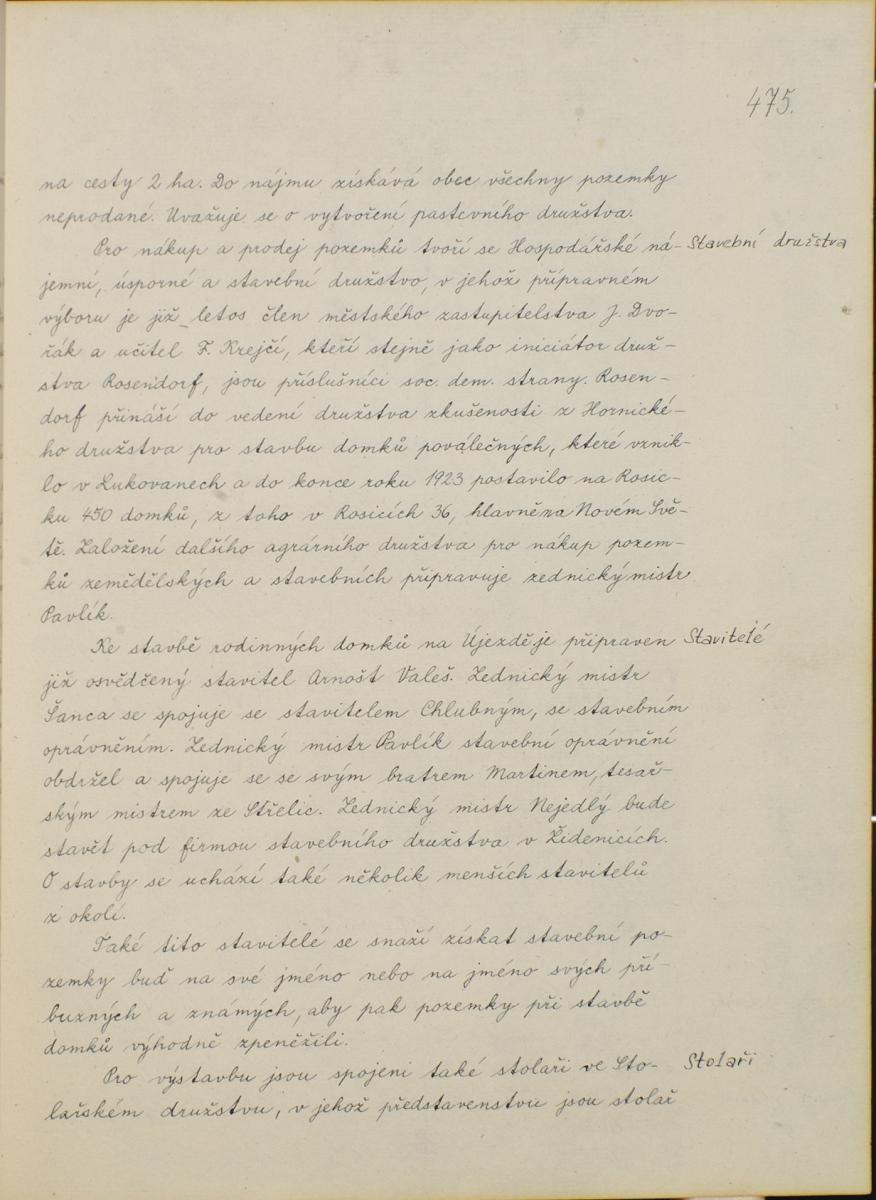 475.
na cesty 2 ha. Do nájmu získává obec všechny pozemky
neprodané. Uvažuje se o vytvoření pastevního družstva.
Pro nákup a prodej pozemků tvoří se Hospodářské ná-
Stavební družstva
jemní, úsporné a stavební družstvo, v jehož přípravném
výboru je již letos člen městského zastupitelstva J. Dvo-
řák a učitel F. Krejčí, kteří stejně jako iniciátor druž-
stva Rosendorf, jsou příslušníci soc. dem. strany. Rosen-
dorf přináší do vedení družstva zkušenosti z Hornické-
ho družstva pro stavbu domků poválečných, které vznik-
lo v Lukovanech a do konce roku 1923 postavilo na Rosic-
ku 450 domků, z toho v Rosicích 36, hlavně na Novém Svě-
tě. Založení dalšího agrárního družstva pro nákup pozem-
ků zemědělských a stavebních připravuje zednický mistr
Pavlík.
Ke stavbě rodinných domků na Újezdě je připraven
Stavitelé
již osvědčený stavitel Arnošt Valeš. Zednický mistr
Šanca se spojuje se stavitelem Chlubným, se stavebním
oprávněním. Zednický mistr Pavlík stavební oprávnění
obdržel a spojuje se se svým bratrem Martinem, tesař-
ským mistrem ze Střelic. Zednický mistr Nejedlý bude
stavět pod firmou stavebního družstva v Židenicích.
O stavby se uchází také několik menších stavitelů
z okolí.
Také tito stavitelé se snaží získat stavební po-
zemky buď na své jméno nebo na jméno svých pří-
buzných a známých, aby pak pozemky při stavbě
domků výhodně zpeněžili.
Pro výstavbu jsou spojeni také stolaři ve Sto-
Stolaři
lařském družstvu, v jehož představenstvu jsou stolař